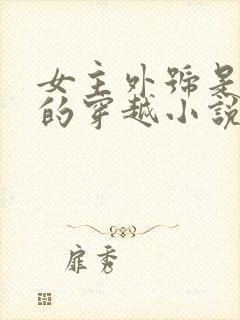 女主外號是
的穿越小說
扉秀